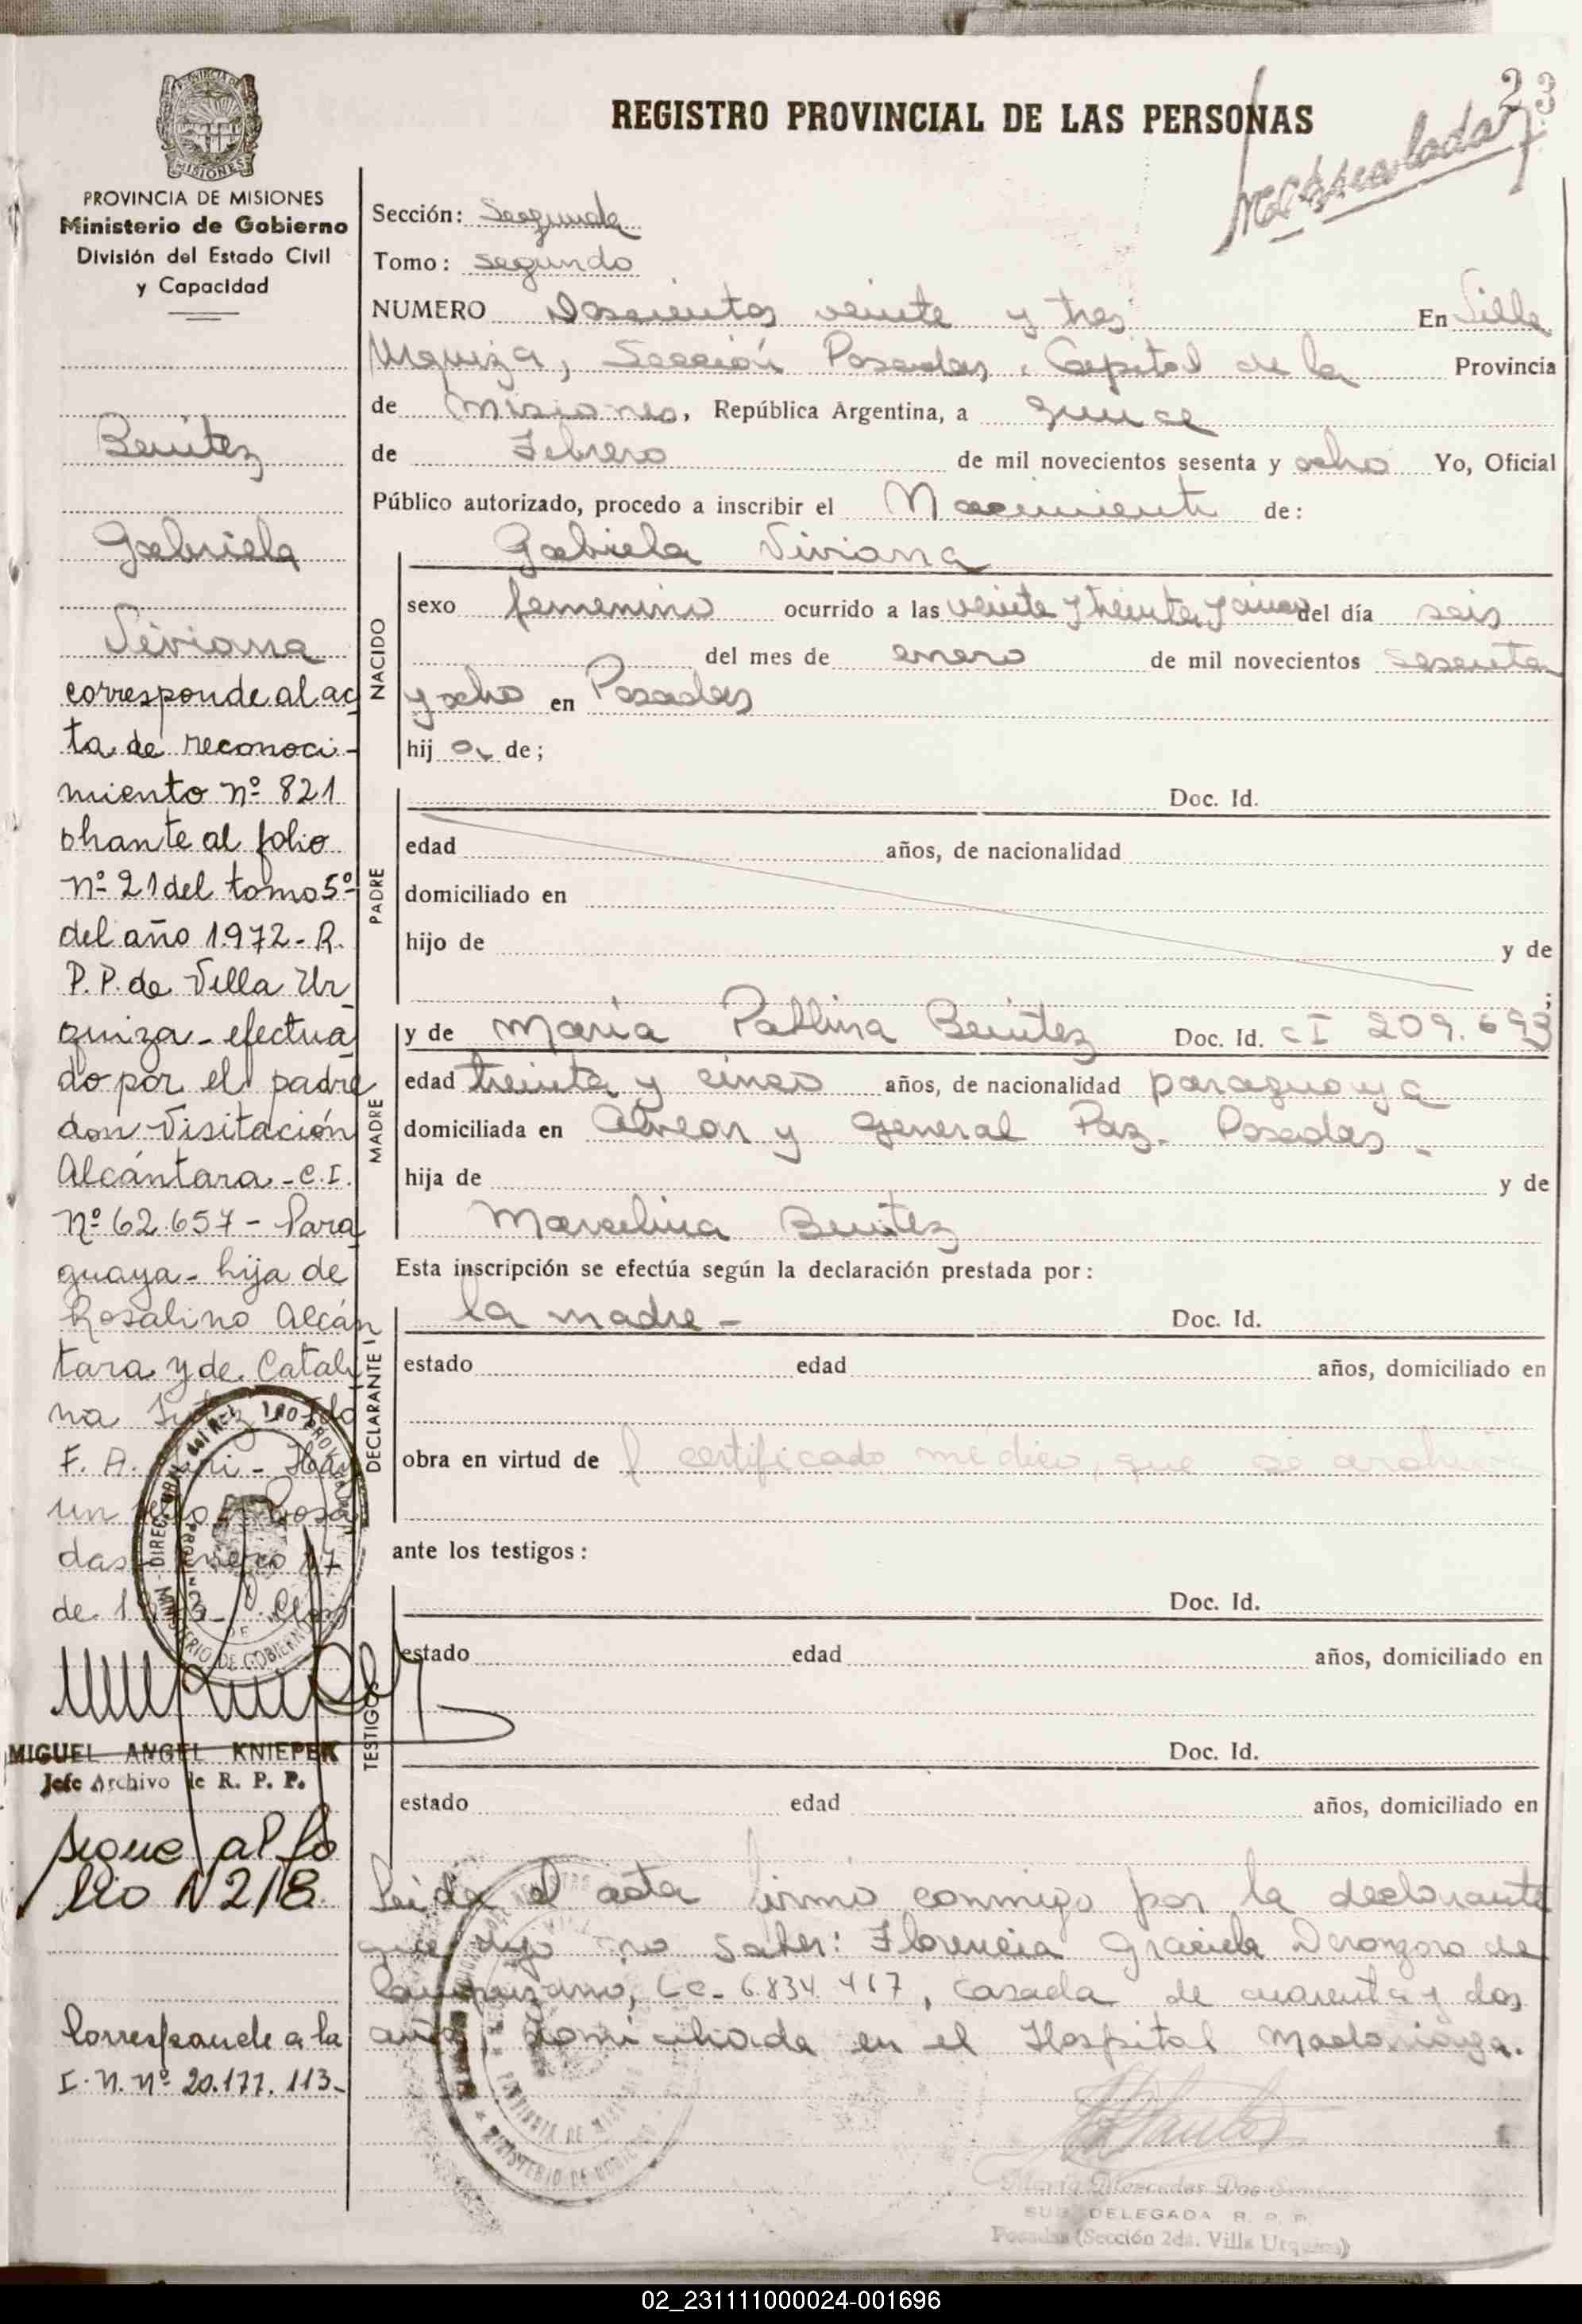 23
Matriculada
REGISTRO PROVINCIAL DE LAS PERSONAS
PROVINCIA DE MISIONES
Ministerio de Gobierno
División del Estado Civil
y Capacidad
Benitez
Gabriela
Viviana
corresponde al ac
ta de reconoci-
miento nº 821
obrante al folio
nº 21 del tomo 5º
del año 1972 - R.
P. P. de Villa Ur
quiza - efectua
do por el padre
don Visitación
Alcántara - C.I.
Nº 62.657 - Para
guaya - hija de
Rosalino Alcán
tara y de Catali
na
F. A.
un
das Enero 17
de
MIGUEL ANGEL KNIEPER
Jefe Archivo de R. P. P.
sigue al fo
lio N 218
Corresponde a la
I. N. Nº 20.177.113-
Sección: Segunda
Tomo: segundo
NUMERO Doscientos veinte y tres En Villa
Urquiza, Sección Posadas, Capital de la Provincia
de Misiones, República Argentina, a quince
de Febrero de mil novecientos sesenta y ocho Yo, Oficial
Público autorizado, procedo a inscribir el Nacimiento de:
Gabriela Viviana
NACIDO
sexo femenino ocurrido a las veinte y treinta y cinco del día seis
del mes de enero de mil novecientos sesenta
y ocho en Posadas
hij a de;
PADRE
Doc. Id.
edad años, de nacionalidad
domiciliado en
hijo de y de
;
MADRE
y de María Benitez Doc. Id. CI 209.693
edad treinta y cinco años, de nacionalidad paraguaya
domiciliada en Alvear y General Paz - Posadas -
hija de y de
Marcelina Benitez
Esta inscripción se efectúa según la declaración prestada por:
DECLARANTE
la madre - Doc. Id.
estado edad años, domiciliado en
obra en virtud de l certificado médico, que se archiva
ante los testigos:
TESTIGOS
Doc. Id.
estado edad años, domiciliado en
Doc. Id.
estado edad años, domiciliado en
Leida el acta firmó conmigo por la declarante
que dijo no saber: Florencia Graciela de
L.C. 6.834.467, casada de cuarenta y dos
años, domiciliada en el Hospital Madariaga.
MINISTERIO DE GOBIERNO
PROVINCIA DE MISIONES
María Mercedes Dos Santos
SUB DELEGADA R. P. P.
Posadas (Sección 2da. Villa Urquiza)
02_231111000024-001696